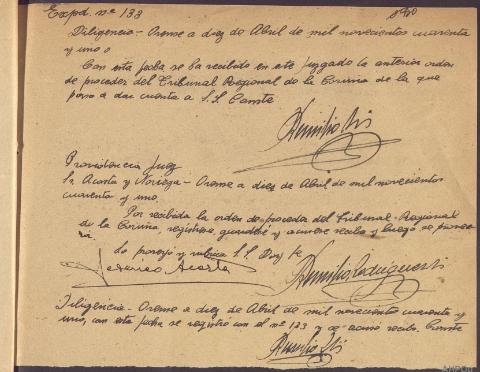 Expd. nº 133
Diligencia - Orense a diez de Abril de mil novecientos cuarenta
y uno.
Con esta fecha se ha recibido en este juzgado la anterior orden
de proceder del Tribunal Regional de la Coruña de la que
paso a dar cuenta a S.S. Conste
Providencia Juez
Sr. Acosta y Noriega - Orense a diez de Abril de mil novecientos
cuarenta y uno.
Por recibida la orden de proceder del Tribunal Regional
de la Coruña, regístrese, guárdese y acúsese recibo y luego se provee-
rá.
Lo proveyó y rubrica S.S. Doy fe
Federico Acosta
Remilio Rodriguez
Diligencia - Orense a diez de Abril de mil novecientos cuarenta y
uno, con esta fecha se registró con el nº 133 y se acusó recibo. Conste